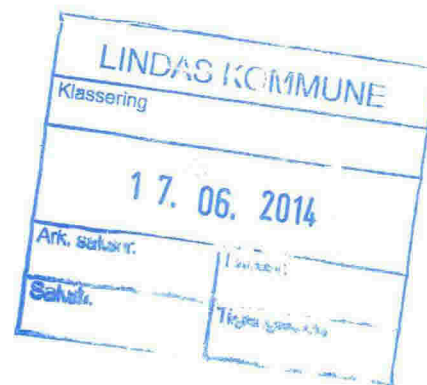 LINDÅS KOMMUNE
Klassering
17. 06. 2014
Ark. saksnr.
Saksh.